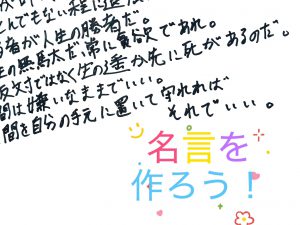 とんでもない程に
者が人生の勝者だ。
の無馬太だ、常に貪欲であれ。
反対ではなく生の遥か先に死があるのだ。
間は嫌いなままでいい。
間を自分の手元に置いて守れれば
それでいい。
名言を
作ろう！